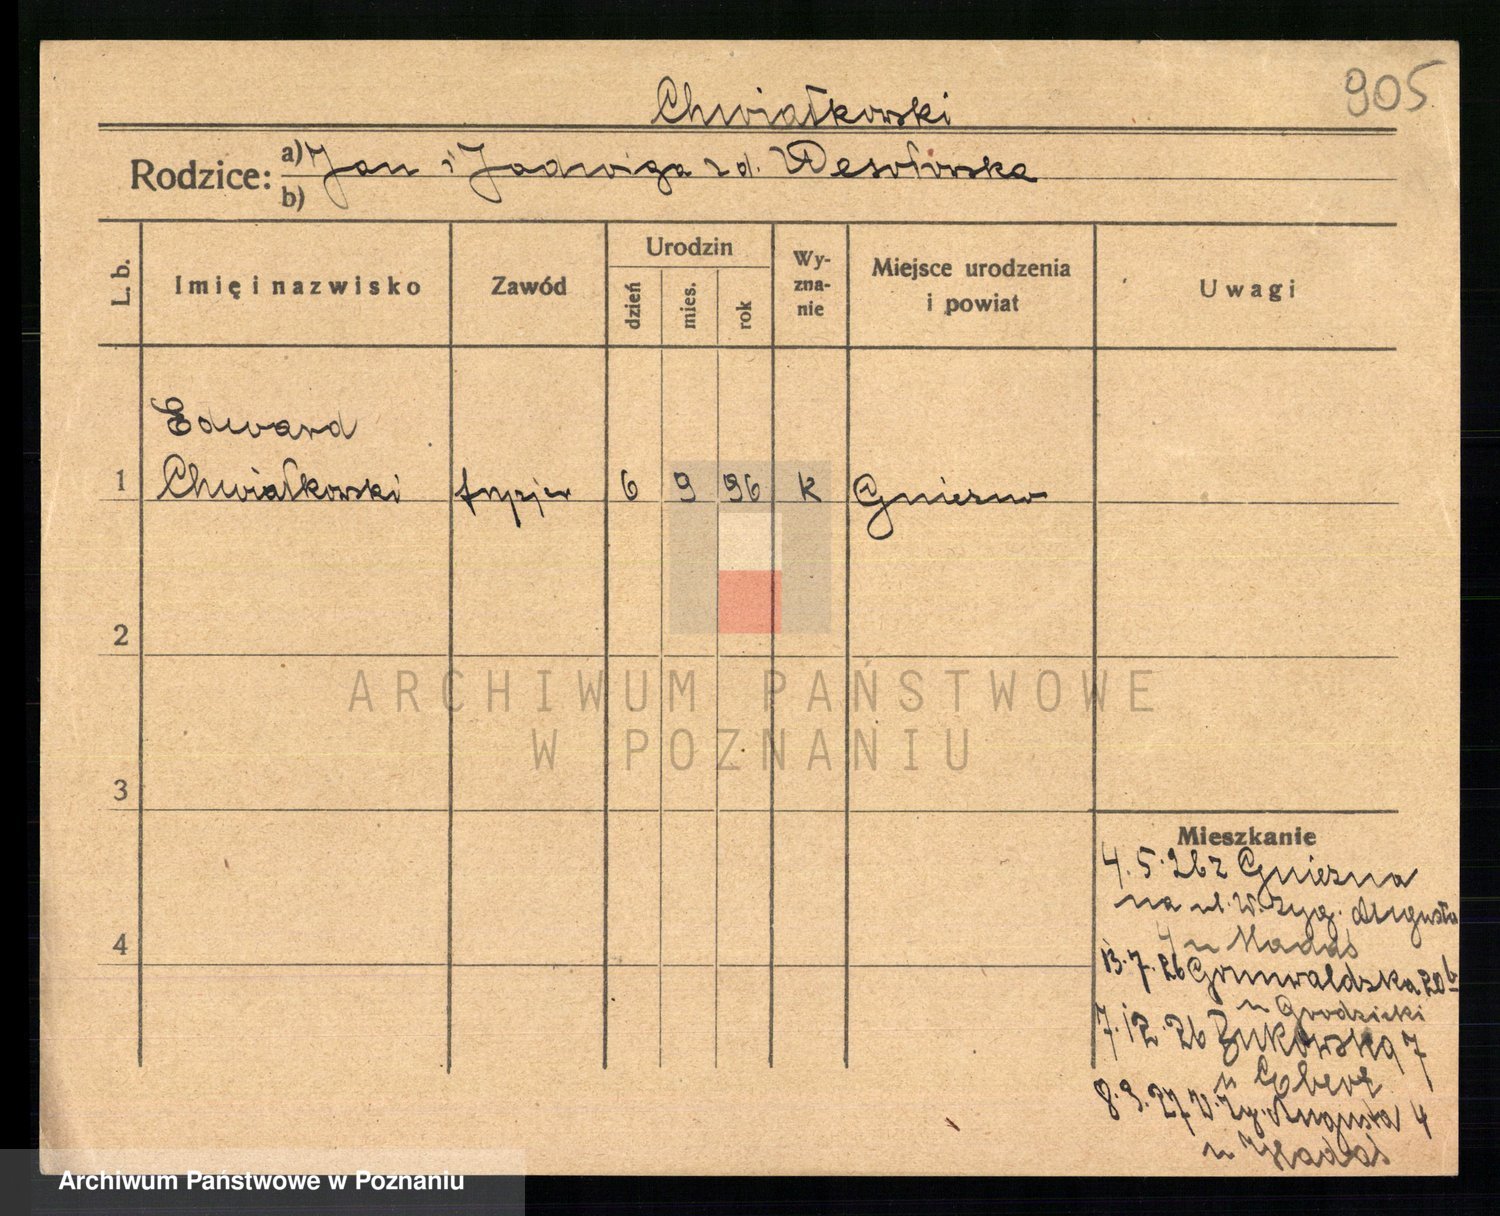 905
Chwiałkowski
Rodzice: a) Jan i Jadwiga z d. Wesołowska
b)
L. b.
Imię i nazwisko
Zawód
Urodzin
dzień
mies.
rok
Wy-
zna-
nie
Miejsce urodzenia
i powiat
Uwagi
Edward
1 Chwiałkowski fryzjer 6 9 96 k Gniezno
2
3
4
ARCHIWUM PAŃSTWOWE
W POZNANIU
Mieszkanie
4.5.26 z Gniezna
na ul. W. Zyg. Augusta
4 u Nadaś
13.7.26 Grunwaldzka 20b
u Grodzicki
7.12.26 Bukowska 7
u
8.3.27 W. Zy. Augusta 4
u
Archiwum Państwowe w Poznaniu